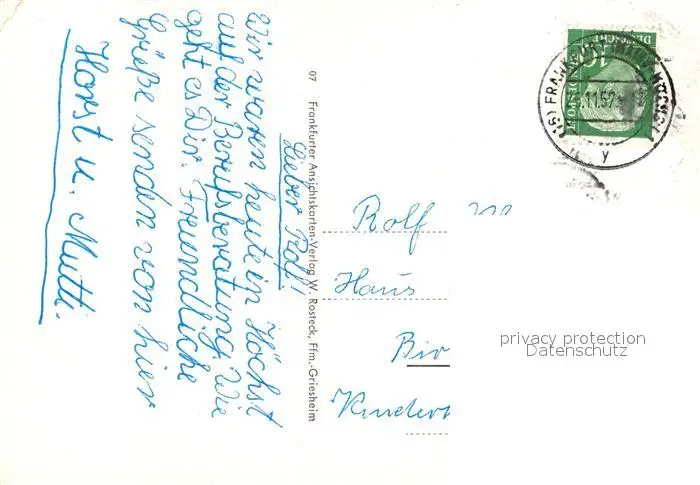 Lieber Rolf!
Wir waren heute in Höchst
auf der Berufsberatung. Wie
geht es Dir. Freundliche
Grüße senden von hier
Horst u. Mutti.
07 Frankfurter Ansichtskarten-Verlag W. Rosteck, Ffm.-Griesheim
Rolf
Haus
Bir
Kinderh
10
DEUTSCHE
BUNDESPOST
(16) FRANKFURT
privacy protection
Datenschutz